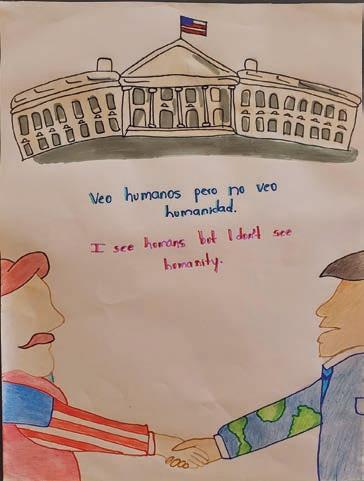 Veo humanos pero no veo
humanidad.
I see homans but I don't see
homanity.